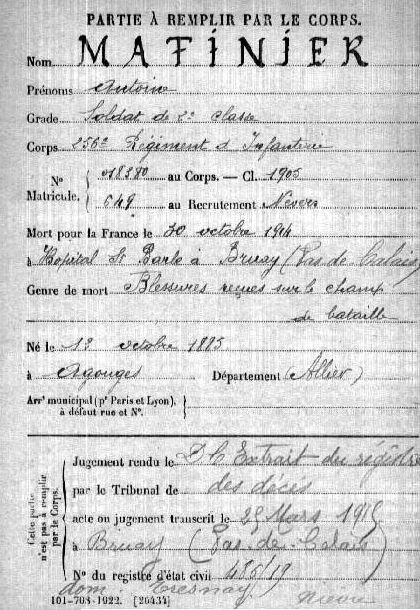 PARTIE À REMPLIR PAR LE CORPS.
Nom MATINIER
Prénoms Antoine
Grade Soldat de 2e classe
Corps 256e Régiment d'Infanterie
N° Matricule. { 018380 au Corps. — Cl. 1905
649 au Recrutement Nevers
Mort pour la France le 30 octobre 1914
à Hôpital St Barbe à Bruay (Pas de Calais)
Genre de mort Blessures reçues sur le champ
de bataille
Né le 13 octobre 1885
à Agouges Département (Allier)
Arrt municipal (pr Paris et Lyon),
à défaut rue et N°.
Cette partie n'est pas à remplir par le Corps.
Jugement rendu le D C Extrait du régistre
par le Tribunal de des décès
acte ou jugement transcrit le 25 Mars 1915
à Bruay (Pas-de-Calais)
N° du registre d'état civil 486/19
dom Tresnay Nièvre
101-708-1922. [26434]